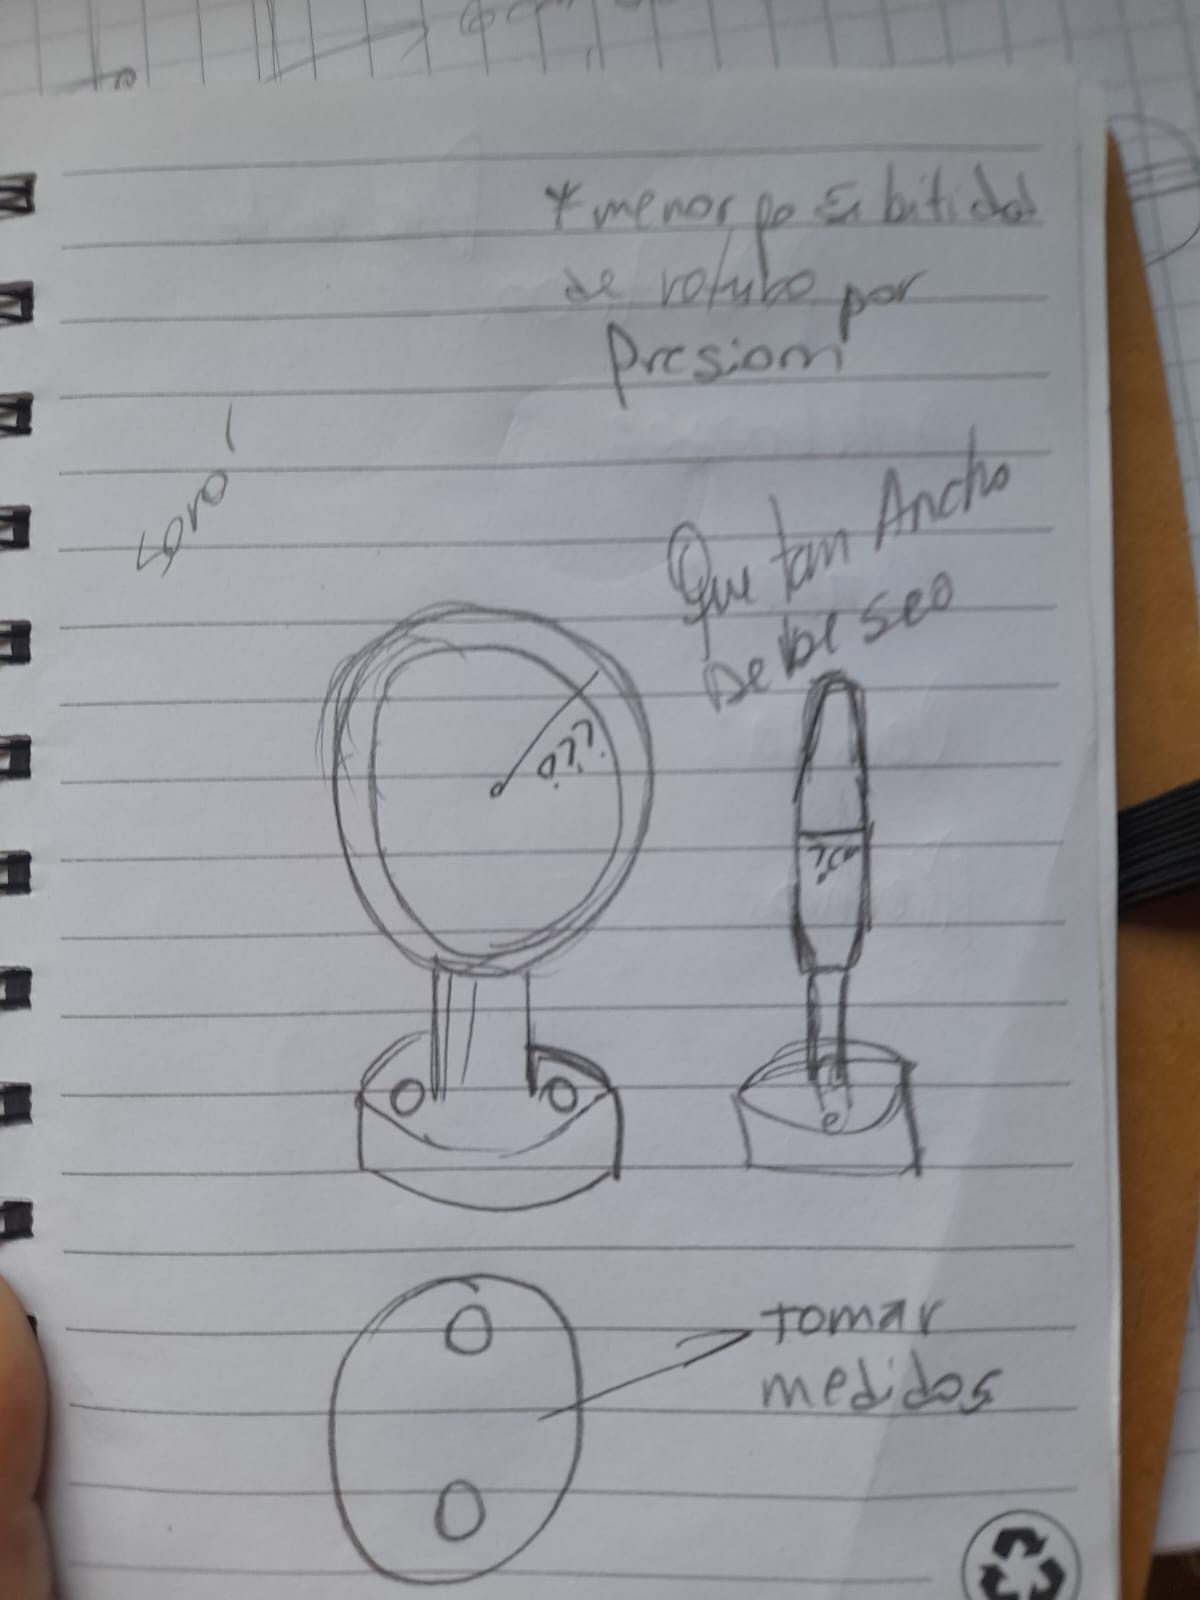 * menor posibilidad
de rotura por
Presiom
Que tan Ancho
Debe sea
???
?cm
Tomar
medidas